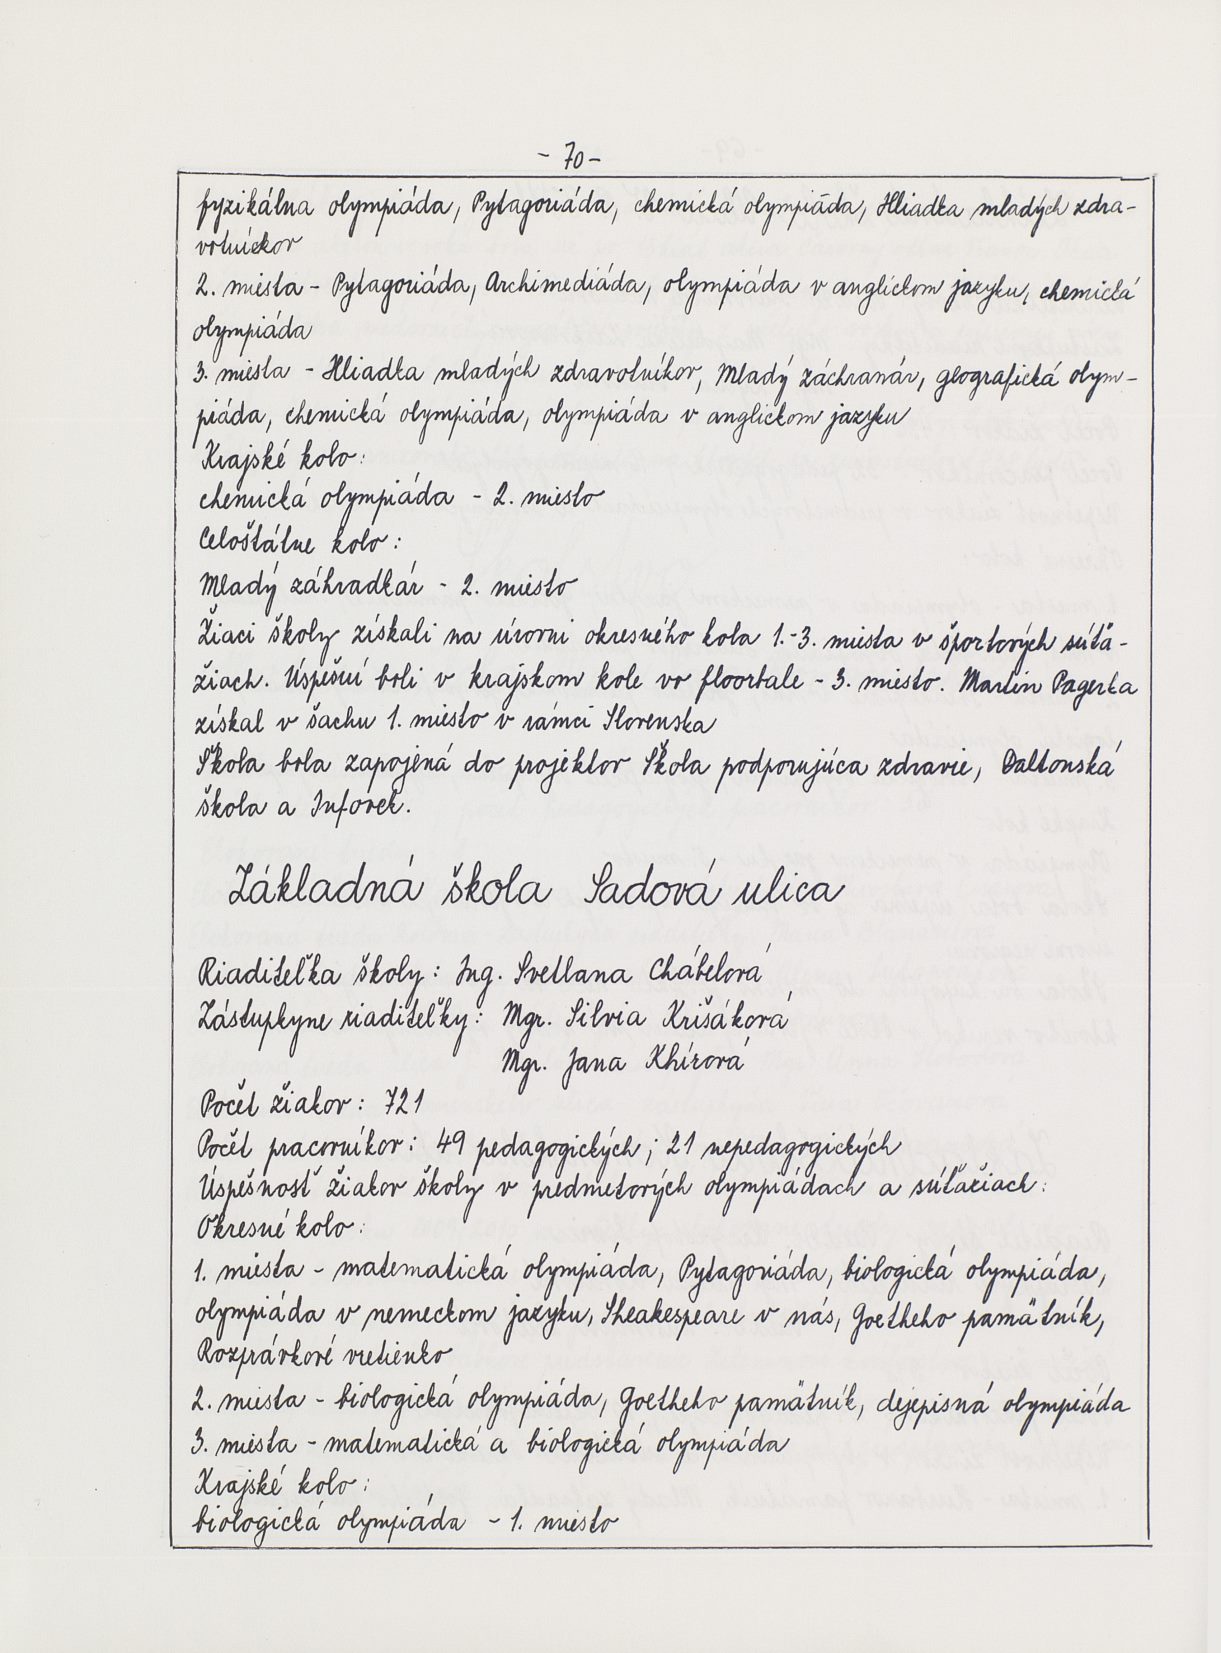 - 70 -
fyzikálna olympiáda, Pytagoriáda, chemická olympiáda, Hliadka mladých zdra-
votníckov
2. miesta - Pytagoriáda, Archimediáda, olympiáda v anglickom jazyku, chemická
olympiáda
3. miesta - Hliadka mladých zdravotníkov, Mladý záchranár, geografická olym-
piáda, chemická olympiáda, olympiáda v anglickom jazyku
Krajské kolo:
chemická olympiáda - 2. miesto
Celoštátne kolo:
Mladý záhradkár - 2. miesto
Žiaci školy získali na úrovni okresného kola 1.-3. miesta v športových súťa-
žiach. Úspešní boli v krajskom kole vo floorbale - 3. miesto. Martin
získal v šachu 1. miesto v rámci Slovenska
Škola bola zapojená do projektov Škola podporujúca zdravie, Daltonská
škola a Infovek.
Základná škola Sadová ulica
Riaditeľka školy: Ing. Svetlana Chábelová
Zástupkyne riaditeľky: Mgr. Silvia Krišáková
Mgr. Jana Khírová
Počet žiakov: 721
Počet pracovníkov: 49 pedagogických; 21 nepedagogických
Úspešnosť žiakov školy v predmetových olympiádach a súťažiach:
Okresné kolo:
1. miesta - matematická olympiáda, Pytagoriáda, biologická olympiáda,
olympiáda v nemeckom jazyku, Sheakespeare v nás, Goetheho pamätník,
Rozprávkové vretienko
2. miesta - biologická olympiáda, Goetheho pamätník, dejepisná olympiáda
3. miesta - matematická a biologická olympiáda
Krajské kolo:
biologická olympiáda - 1. miesto